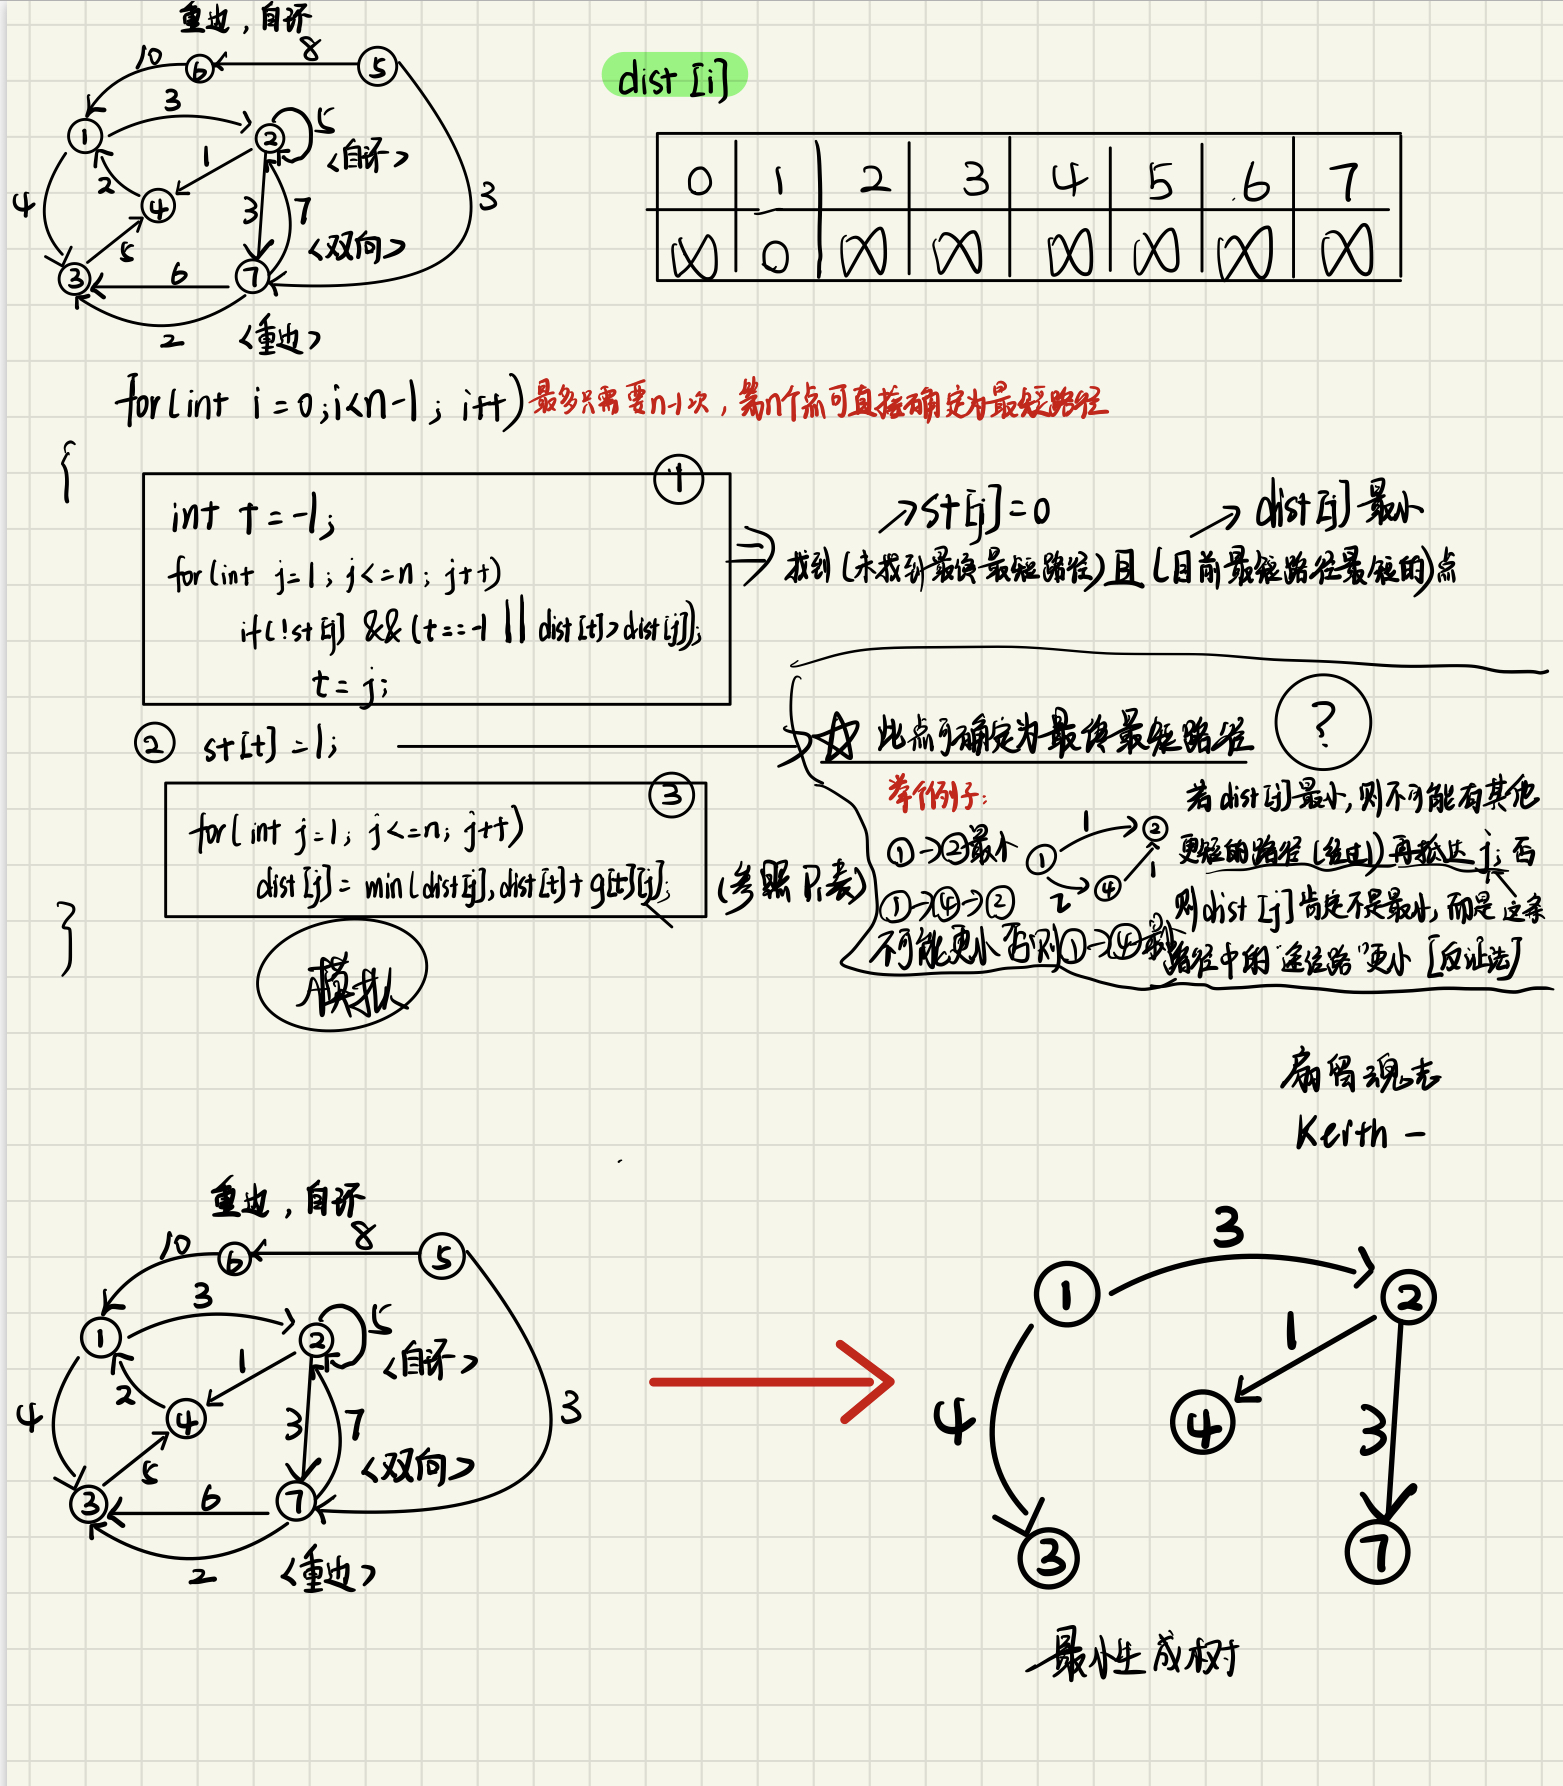 重边，自环
10 6 8 5
1 3 2 5
<自环>
4 2 4 1 3 7 3
<双向>
3 5 6 7
2 <重边>
dist[i]
0 1 2 3 4 5 6 7
∞ 0 ∞ ∞ ∞ ∞ ∞ ∞
for(int i=0;i<n-1; i++) 最多只需要n-1次，第n个点可直接确定为最短路径
{
①
int t=-1;
for(int j=1; j<=n; j++)
if(!st[j] && (t==-1 || dist[t]>dist[j]);
t=j;
st[j]=0 dist[j]最小
找到(未找到最终最短路径)且(目前最短路径最短的)点
② st[t]=1;
此点可确定为最终最短路径 ?
③
for(int j=1; j<=n; j++)
dist[j]=min(dist[j],dist[t]+g[t][j];
(参照P.表)
}
模拟
举个例子:
①->②最小
①->④->②
不可能更小否则①->④最小
1 1 2
2 4 1
若dist[j]最小,则不可能有其他
更短的路径(经过)再抵达j;否
则dist[j]肯定不是最小,而是这条
路径中的"途径路"更小[反证法]
Keith -
重边，自环
10 6 8 5
1 3 2 5
<自环>
4 2 4 1 3 7 3
<双向>
3 5 6 7
2 <重边>
1 3 2
4 4 1 3
3 7
最小生成树